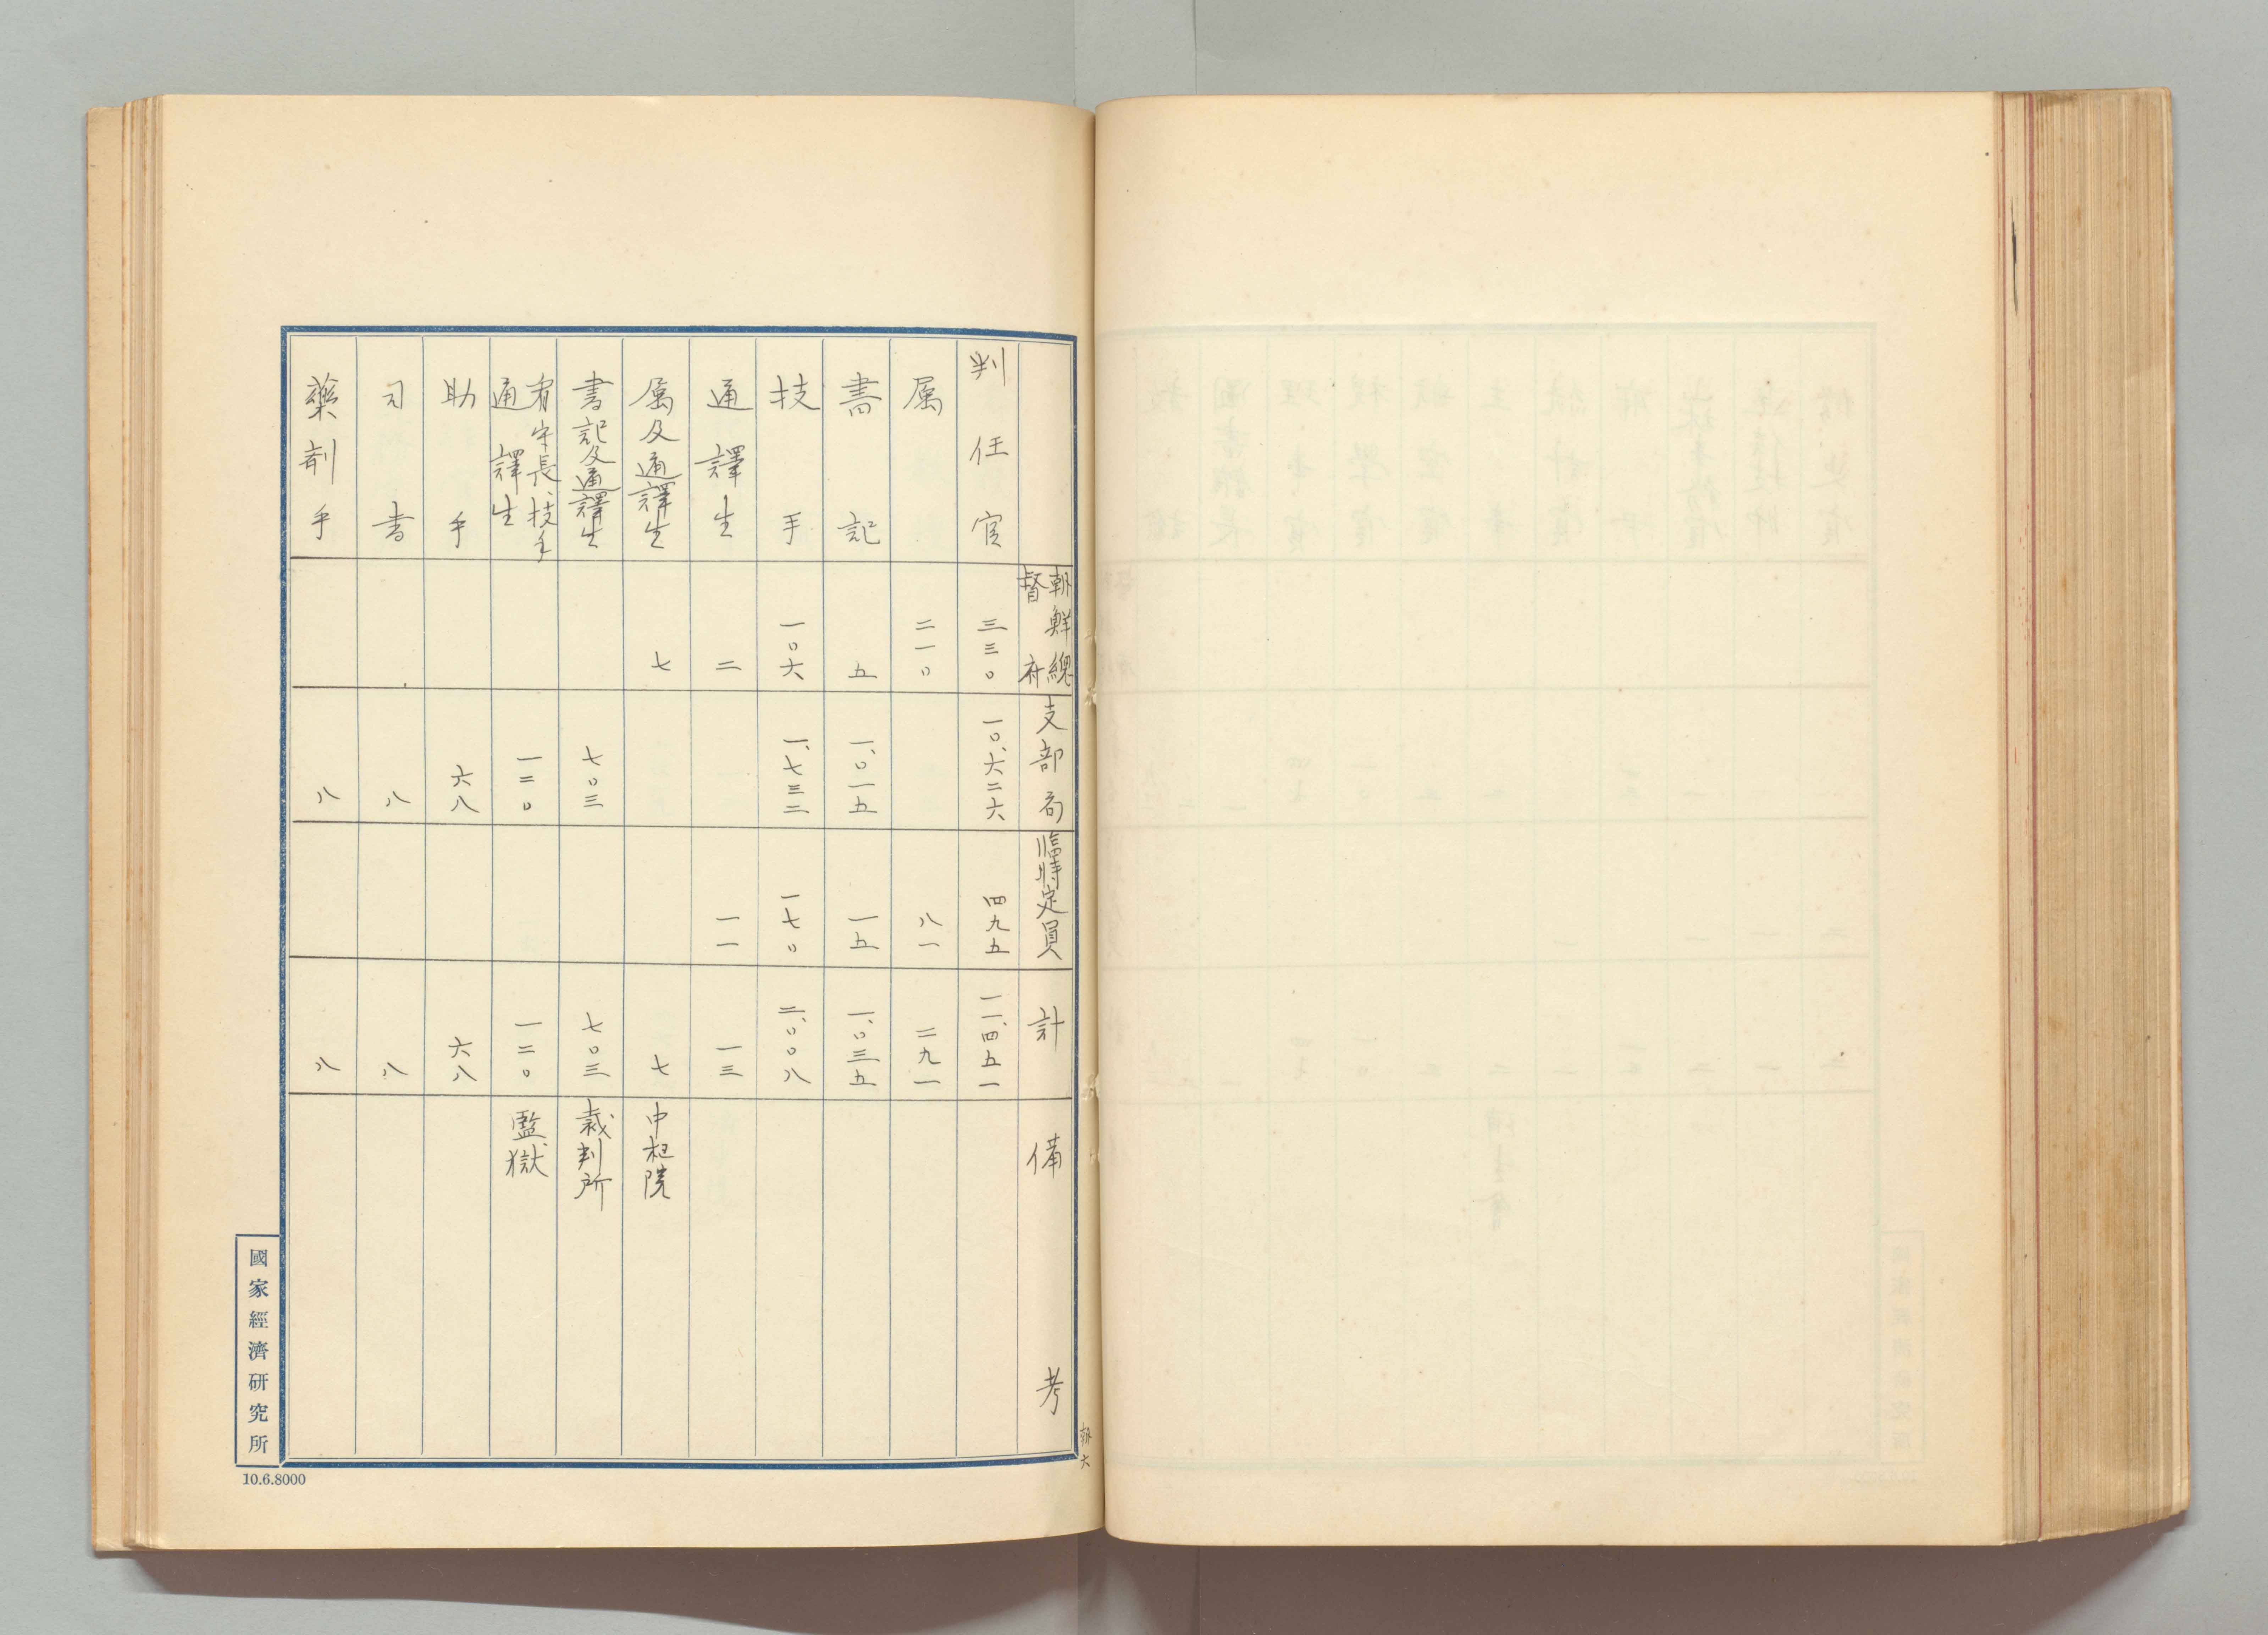 朝鮮總督府
支部局
臨時定員
計
備考
判任官
三三〇
一〇、六二六
四九五
一一、四五一
属
二一〇
八一
二九一
書記
五
一、〇一五
一五
一、〇三五
技手
一〇六
一、七三二
一七〇
二、〇〇八
通譯生
二
一一
一三
属及通譯生
七
七
中枢院
書記及通譯生
七〇三
七〇三
裁判所
看守長、技手
通譯生
一二〇
一二〇
監獄
助手
六八
六八
司書
八
八
藥剤手
八
八
朝六
國家經濟研究所
10.6.8000